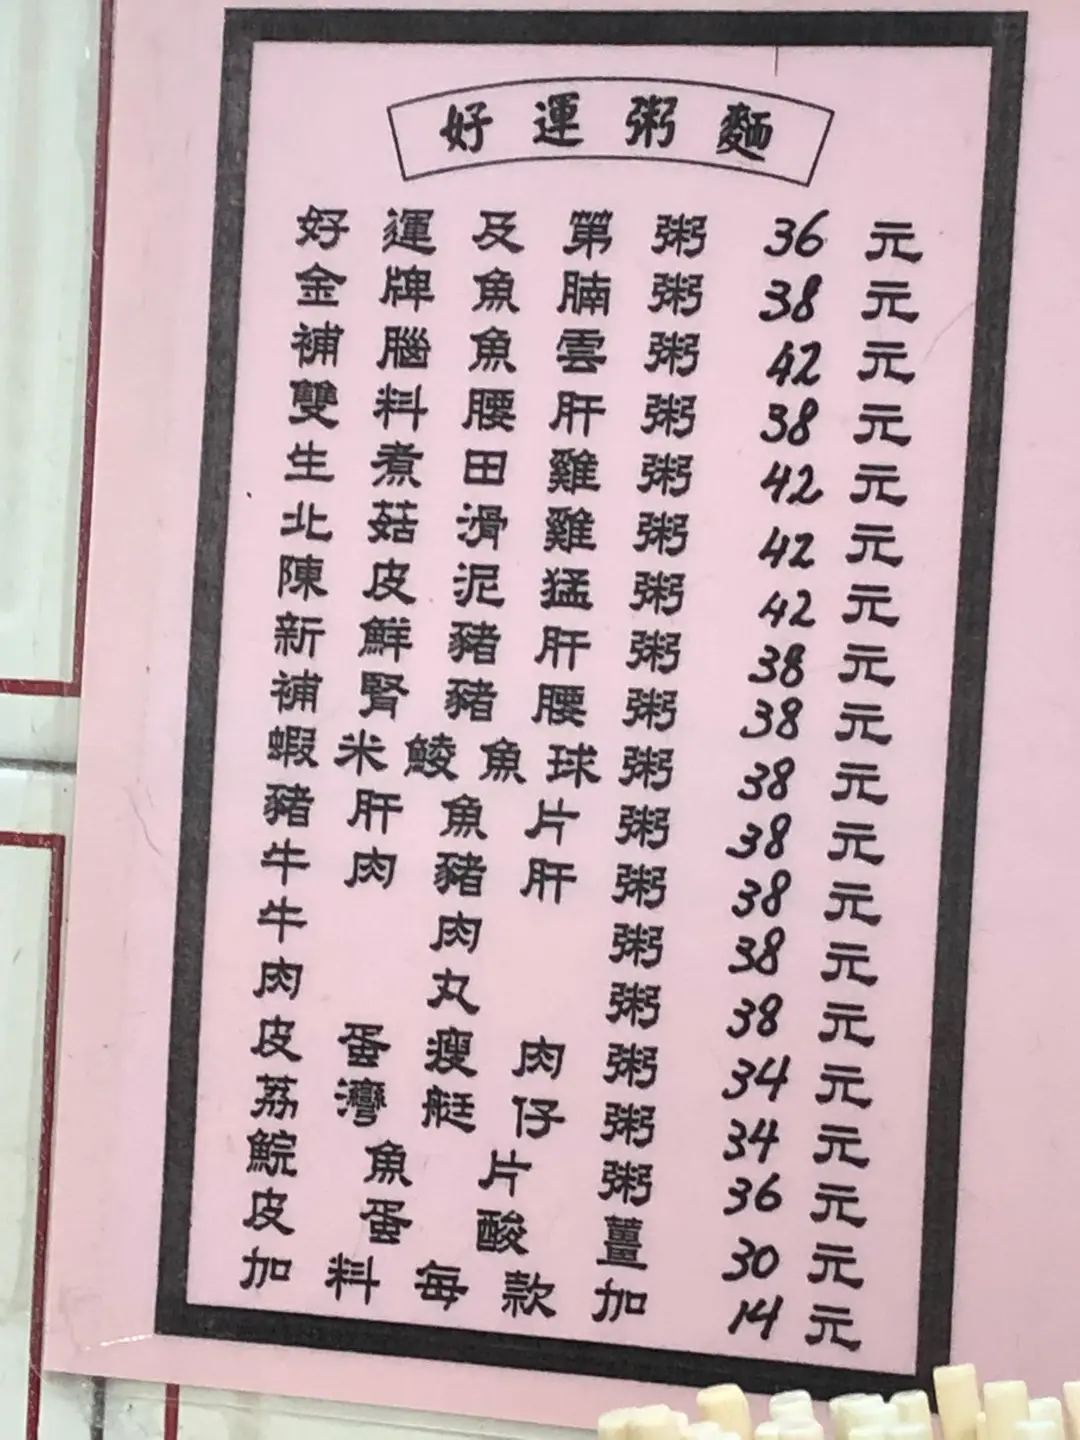 好運粥麵
好運及第粥 36元
金牌魚腩粥 38元
補腦魚雲粥 42元
雙料腰肝粥 38元
生煮田雞粥 42元
北菇滑雞粥 42元
陳皮泥猛粥 42元
新鮮豬肝粥 38元
補腎豬腰粥 38元
蝦米鯪魚球粥 38元
豬肝魚片粥 38元
牛肉豬肝粥 38元
牛肉粥 38元
肉丸粥 38元
皮蛋瘦肉粥 34元
荔灣艇仔粥 34元
鯇魚片粥 36元
皮蛋酸薑 30元
加料每款加 14元